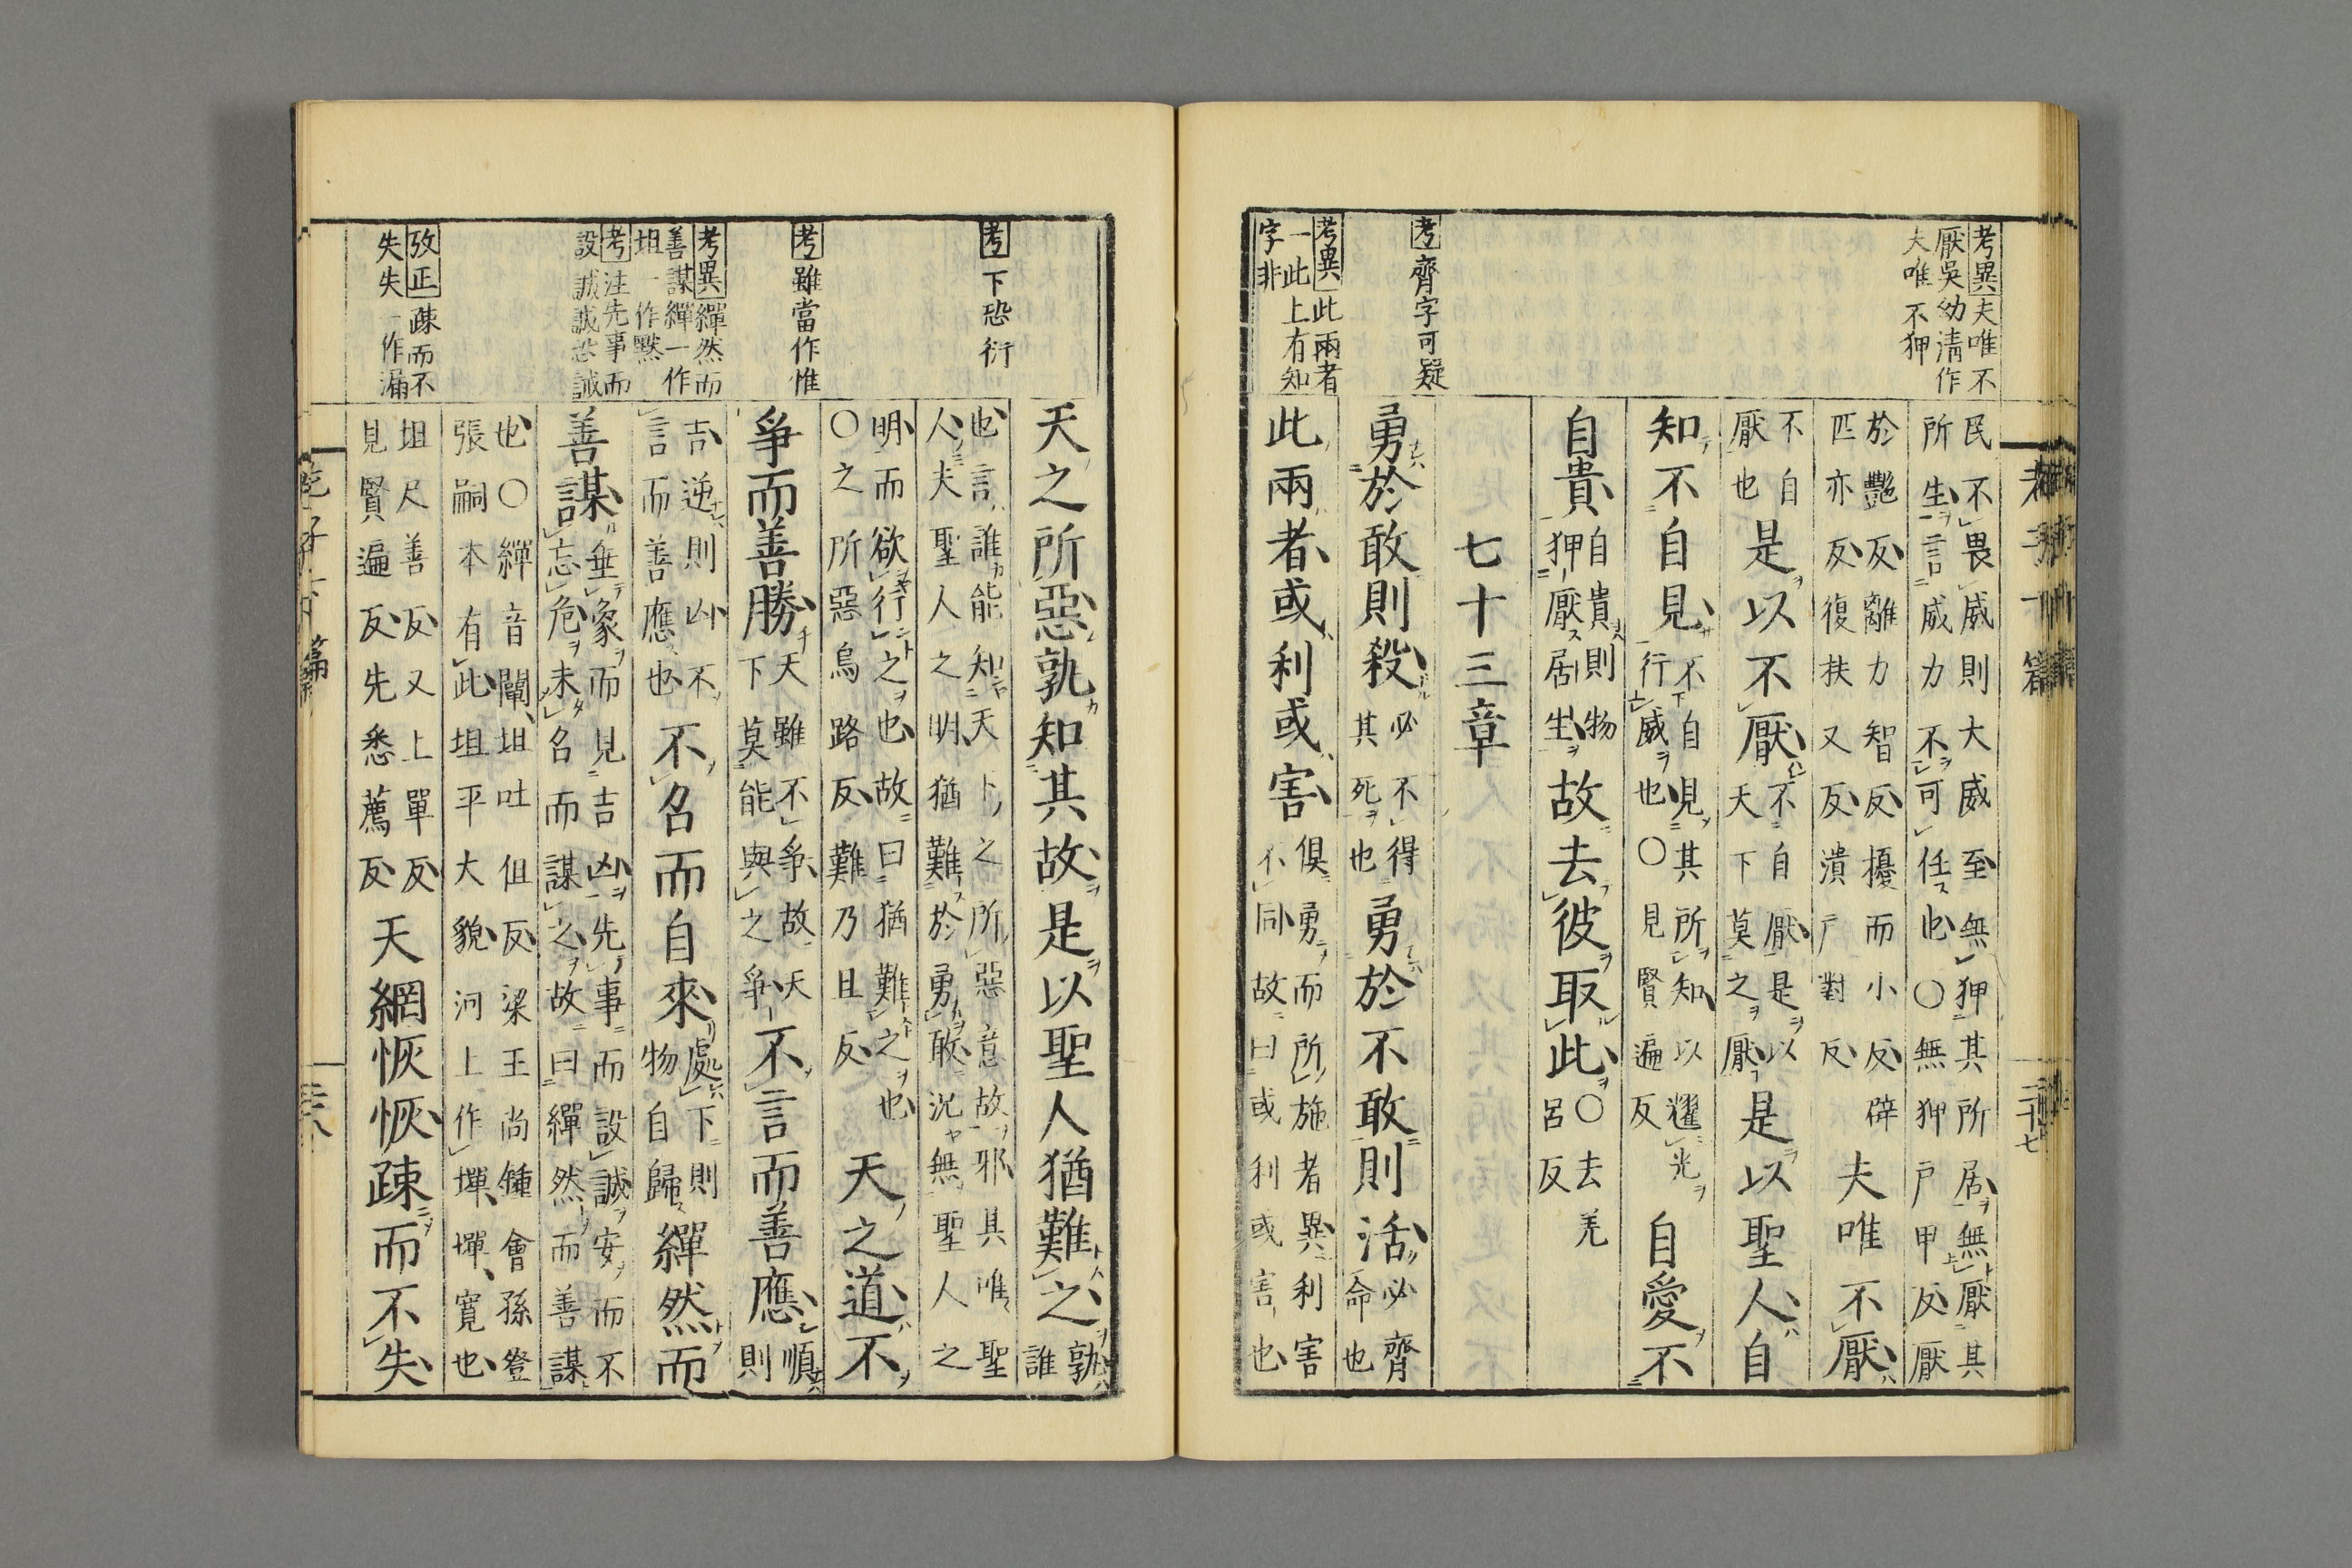 考異夫唯不
厭吳幼淸作
夫唯不狎
考齊字可疑
考異此兩者
一此上有知
字非
民不畏威則大威至無狎其所居無厭其
所生言威力不可任也〇無狎戸甲反厭
於艷反離力智反擾而小反僻
匹亦反復扶又反潰戸對反
夫唯不厭
不自
厭也
是以不厭
不自厭是以
天下莫之厭
是以聖人自
知不自見
不自見其所知以耀光
行威也〇見賢遍反
自愛不
自貴
自貴則物
狎厭居生
故去彼取此
〇去羌
呂反
七十三章
勇於敢則殺
必不得
其死也
勇於不敢則活
必齊
命也
此兩者或利或害
俱勇而所施者異利害
不同故曰或利或害也
老子下篇
二十七
考下恐衍
考雖當作惟
考異繟然而
善謀繟一作
坦一作默
考注先事而
設誠誠恐誡
攷正疎而不
失失一作漏
天之所惡孰知其故是以聖人猶難之
孰
誰
也言誰能知天下之所惡意故邪其唯聖
人夫聖人之明猶難於勇敢況無聖人之
明而欲行之也故曰猶難之也
〇之所惡烏路反難乃且反
天之道不
爭而善勝
天雖不爭故天
下莫能與之爭
不言而善應
順
則
吉逆則凶不
言而善應也
不召而自來
處下則
物自歸
繟然而
善謀
垂象而見吉凶先事而設誠安而不
忘危未召而謀之故曰繟然而善謀
也〇繟音闡坦吐但反梁王尚鍾會孫登
張嗣本有此坦平大貌河上作墠墠寬也
坦尺善反又上單反
見賢遍反先悉薦反
天網恢恢疎而不失